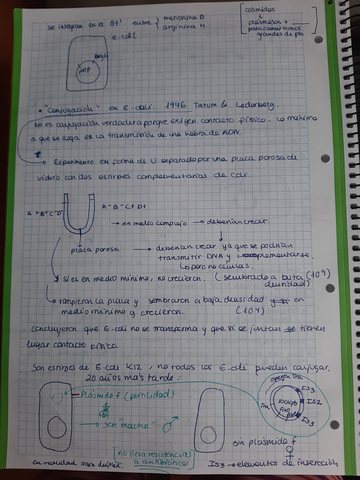 se integran en el entre { metionina B
arginina H
[cósmidos
plásmidos +
para clonar trozos
grandes de
E.coli
• "Conjugación" en E.coli. 1946 Tatum & Lederberg.
No es conjugación verdadera porque exigen contacto físico. Lo máximo
a que se llega es la transmisión de una hebra de ADN.
Experimento en forma de U separado por una placa porosa de
vidrio con dos estirpes complementarias de coli.
A⁻B⁻C⁺D⁺
→ en medio complejo → deberían crecer.
placa porosa
→ deberían crecer ya que se podrían
transmitir DNA y complementarse.
pero no células.
si es en medio mínimo, no crecieron. (sembrado a alta (10⁹)
densidad)
→ rompieron la placa y sembraron a baja densidad en
medio mínimo y crecieron. (10⁴)
Concluyeron que E.coli no se transforma y que si se juntan tienen
lugar contacto
Son estirpes de E.coli K12, no todos los E.coli pueden conjugar.
20 años más tarde:
Plásmido f (fertilidad)
→ son "macho" ♂
[no lleva resistencia
a antibiótico]
sin plásmido f
♀
IS3
IS2
100 kpb
IS3
IS3 → elementos de inserción